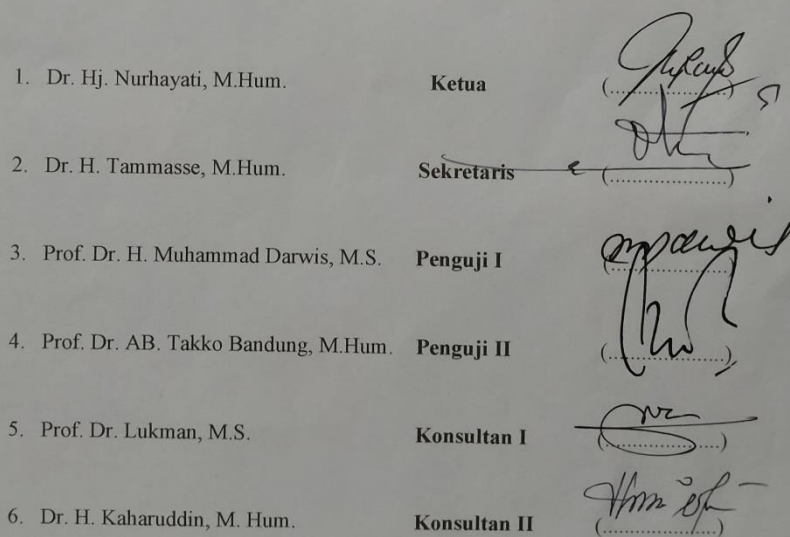 1. Dr. Hj. Nurhayati, M.Hum. Ketua (....................)
2. Dr. H. Tammasse, M.Hum. Sekretaris (....................)
3. Prof. Dr. H. Muhammad Darwis, M.S. Penguji I (....................)
4. Prof. Dr. AB. Takko Bandung, M.Hum. Penguji II (....................)
5. Prof. Dr. Lukman, M.S. Konsultan I (....................)
6. Dr. H. Kaharuddin, M. Hum. Konsultan II (....................)